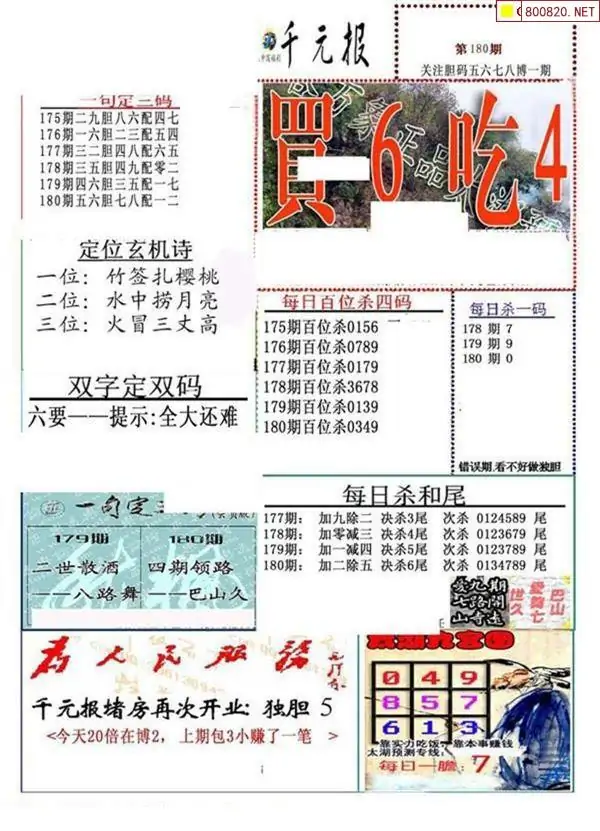 800820.NET
千元报
第180期
关注胆码五六七八博一期
一句定三码
175期二九胆八六配四七
176期一六胆二三配五四
177期三二胆四八配六五
178期三五胆四九配零二
179期四六胆三五配一七
180期五六胆七八配一二
買6吃4
定位玄机诗
一位: 竹签扎樱桃
二位: 水中捞月亮
三位: 火冒三丈高
双字定双码
六要——提示:全大还难
每日百位杀四码
175期百位杀0156
176期百位杀0789
177期百位杀0179
178期百位杀3678
179期百位杀0139
180期百位杀0349
每日杀一码
178 期 7
179 期 9
180 期 0
错误期,看不好做独胆
一句定三
179期
180期
二世散酒
四期领路
——八路舞
——巴山久
每日杀和尾
177期: 加九除二 决杀3尾 次杀 0124589 尾
178期: 加零减三 决杀4尾 次杀 0123679 尾
179期: 加一减四 决杀5尾 次杀 0123789 尾
180期: 加二除五 决杀6尾 次杀 0134789 尾
巴山
为人民服务
千元报堵房再次开业: 独胆 5
<今天20倍在博2, 上期包3小赚了一笔 >
0 4 9
8 5 7
6 1 3
靠实力吃饭,靠本事赚钱
太湖预测专线:
每日一胆: 7